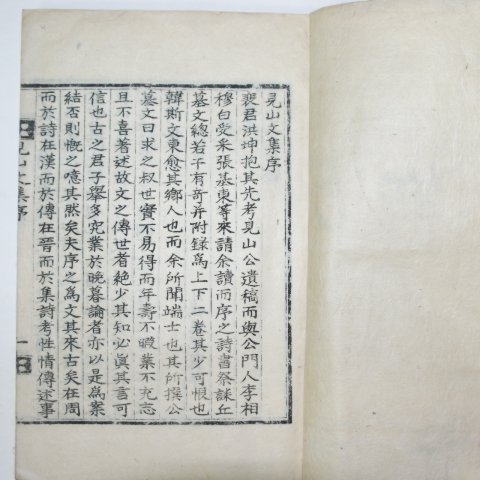 見山文集序
裵君洪坤抱其先考見山公遺稿而與公門人李相
穆白愛采張基東等來請余讀而序之詩書祭誄丘
墓文總若干有奇并附錄爲上下二卷其少可恨也
韓斯文東愈其鄉人也而余所聞端士也其所撰公
墓文曰求之叔世實不易得而年壽不暇業不充志
且不喜著述故文之傳世者絶少其知必眞其言可
信也古之君子舉多究業於晚暮論者亦以是爲案
結否則慨之噫其然矣夫序之爲文其來古矣在周
而於詩在漢而於傳在晉而於集詩考性情傳述事
見山文集序
一